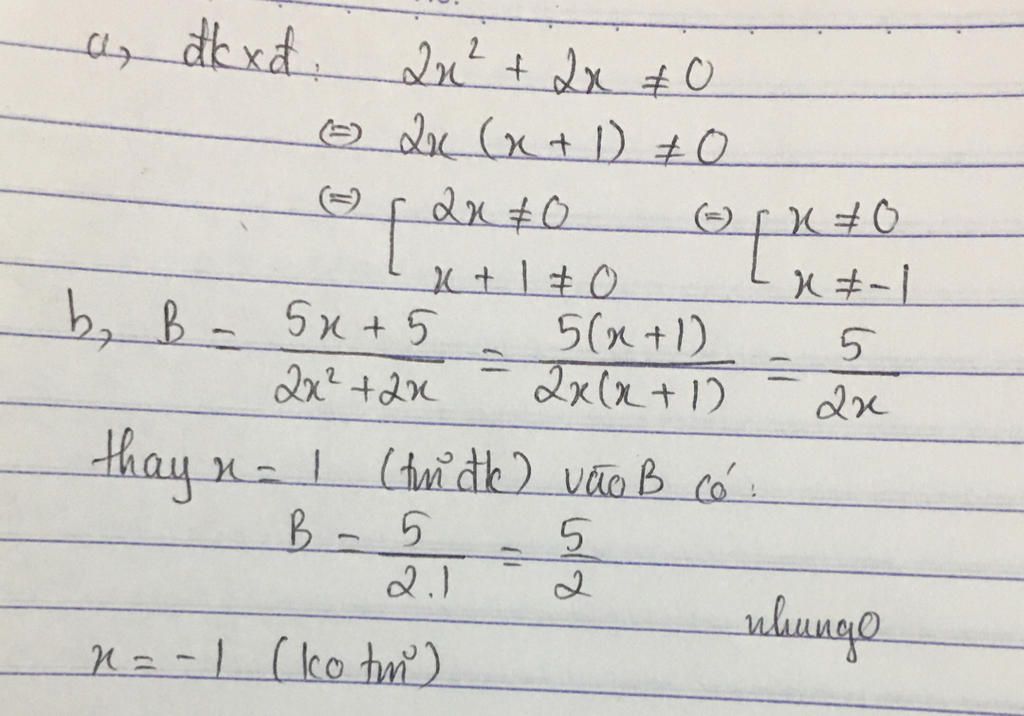 a, đkxđ: 2x² + 2x ≠ 0
⇔ 2x (x + 1) ≠ 0
⇔ [ 2x ≠ 0 ⇔ [ x ≠ 0
x + 1 ≠ 0 x ≠ -1
b, B = (5x + 5)/(2x² + 2x) = 5(x + 1)/2x(x + 1) = 5/2x
thay x = 1 (tm đk) vào B có:
B = 5/2.1 = 5/2
nhungo
x = -1 (ko tm)